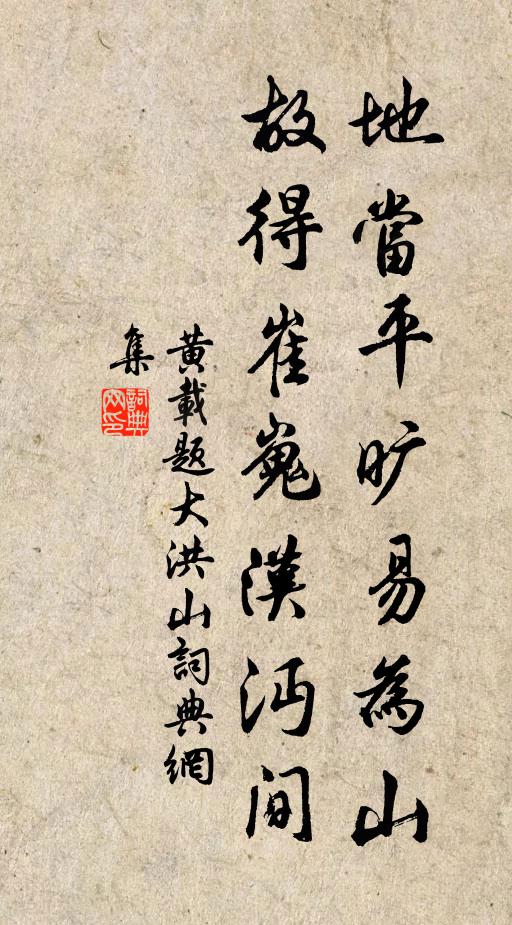 地當平旷易為山
故得崔嵬漢沔间
黄載题大洪山詞典網
集
詞典网印